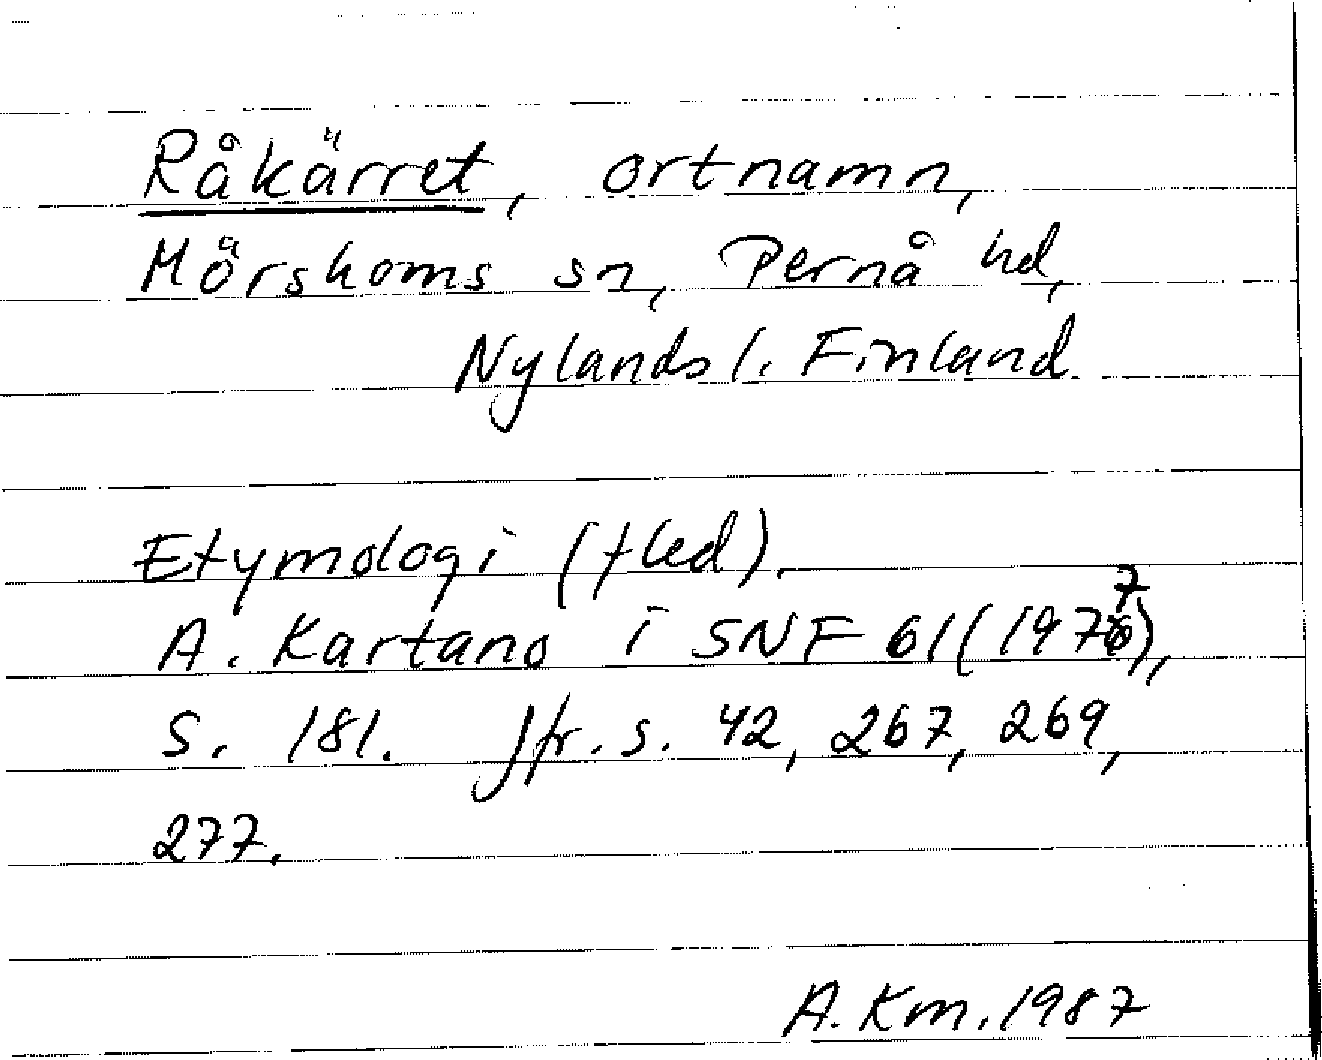 Råkärret, ortnamn,
Mörskoms sn, Pernå hd,
Nylands l. Finland
Etymologi (fled).
A. Kartano i SNF 61 (1977),
s. 181. Jfr. s. 42, 267, 269,
277.
A. Km. 1987